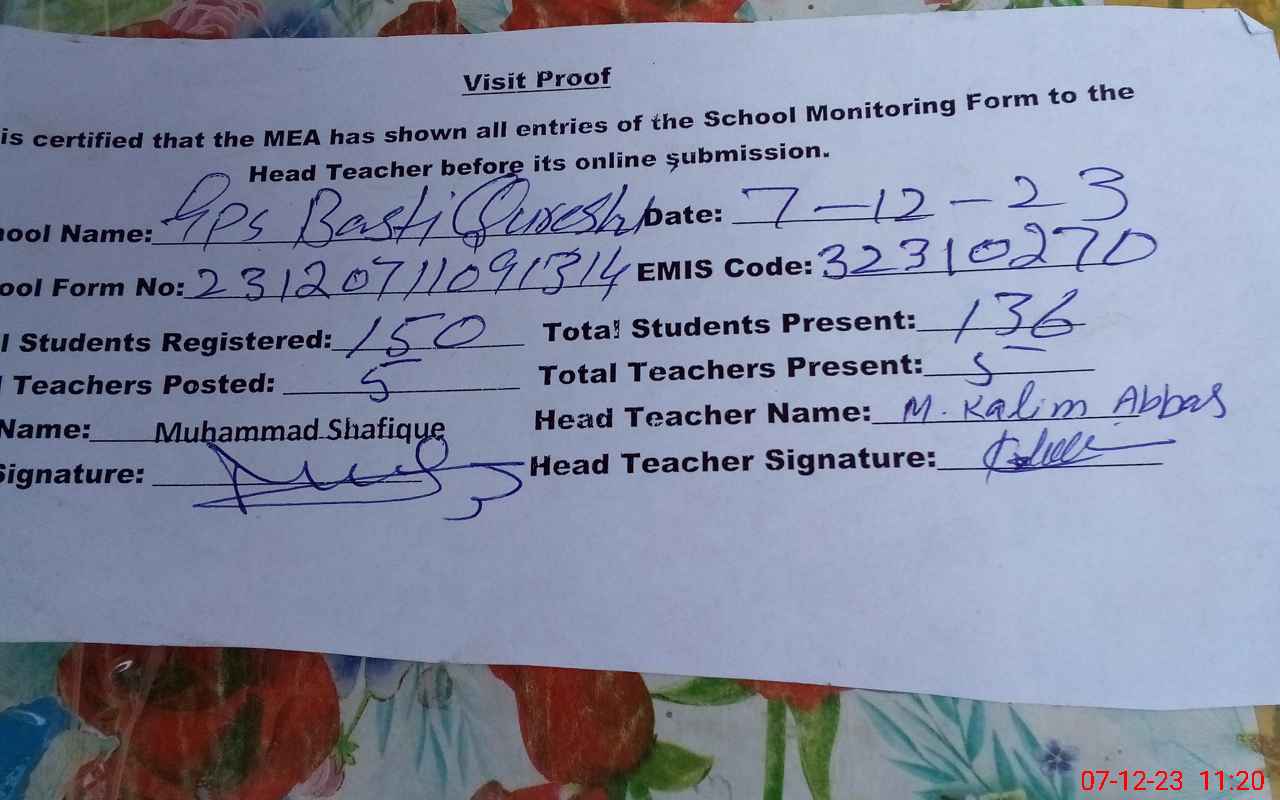 Visit Proof
is certified that the MEA has shown all entries of the School Monitoring Form to the
Head Teacher before its online submission.
hool Name: GPS Basti Qureshi Date: 7-12-23
ool Form No: 23120711091314 EMIS Code: 32310270
l Students Registered: 150 Total Students Present: 136
l Teachers Posted: 5 Total Teachers Present: 5
Name: Muhammad Shafique Head Teacher Name: M. Kalim Abbas
Signature: Head Teacher Signature:
07-12-23 11:20